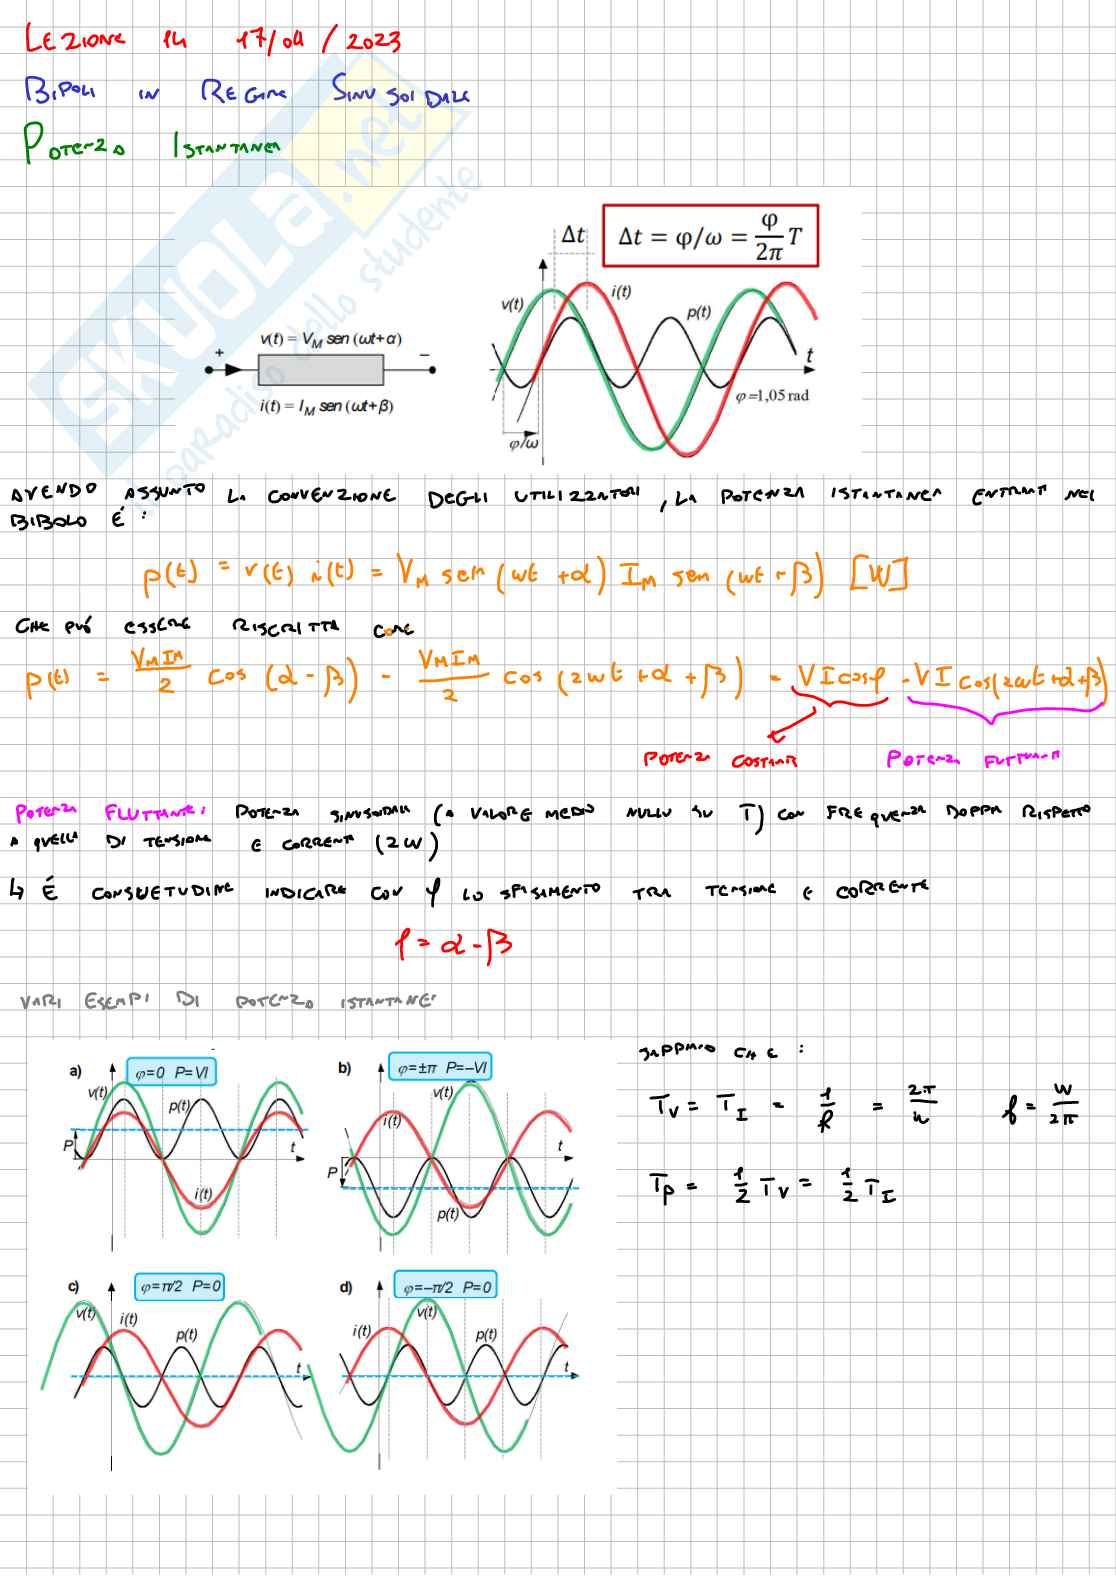 LEZIONE 14 17/04/2023
BIPOLI IN REGIME SINUSOIDALE
POTENZA ISTANTANEA
SKUOLA.net
paradiso dello studente
Δt
Δt = φ/ω = φ/2π T
v(t) i(t) p(t) t
φ=1,05 rad
φ/ω
v(t) = V_M sen (ωt+α)
+ −
i(t) = I_M sen (ωt+β)
AVENDO ASSUNTO LA CONVENZIONE DEGLI UTILIZZATORI, LA POTENZA ISTANTANEA ENTRANT NEL
BIBOLO É:
p(t) = v(t) i(t) = V_M sen (ωt + α) I_M sen (ωt + β) [W]
CHE PUÓ ESSERE RISCRITTA COME
p(t) = V_M I_M/2 cos (α - β) - V_M I_M/2 cos (2ωt + α + β) = VI cosφ - VI cos(2ωt + α + β)
POTENZA COSTANTE POTENZA FLUTTUANTE
POTENZA FLUTTANTE: POTENZA SINUSOIDALE (A VALORE MEDIO NULLO SU T) CON FREQUENZA DOPPIA RISPETTO
A QUELLA DI TENSIONE E CORRENTE (2ω)
↳ É CONSUETUDINE INDICARE CON φ LO SFASAMENTO TRA TENSIONE E CORRENTE
φ = α - β
VARI ESEMPI DI POTENZA ISTANTANEA
a) φ=0 P=VI
v(t) p(t) i(t) P t
b) φ=±π P=−VI
v(t) i(t) p(t) P t
SAPPIAMO CHE:
T_V = T_I = 1/f = 2π/ω f = ω/2π
T_P = 1/2 T_V = 1/2 T_I
c) φ=π/2 P=0
v(t) i(t) p(t) t
d) φ=−π/2 P=0
i(t) v(t) p(t) t